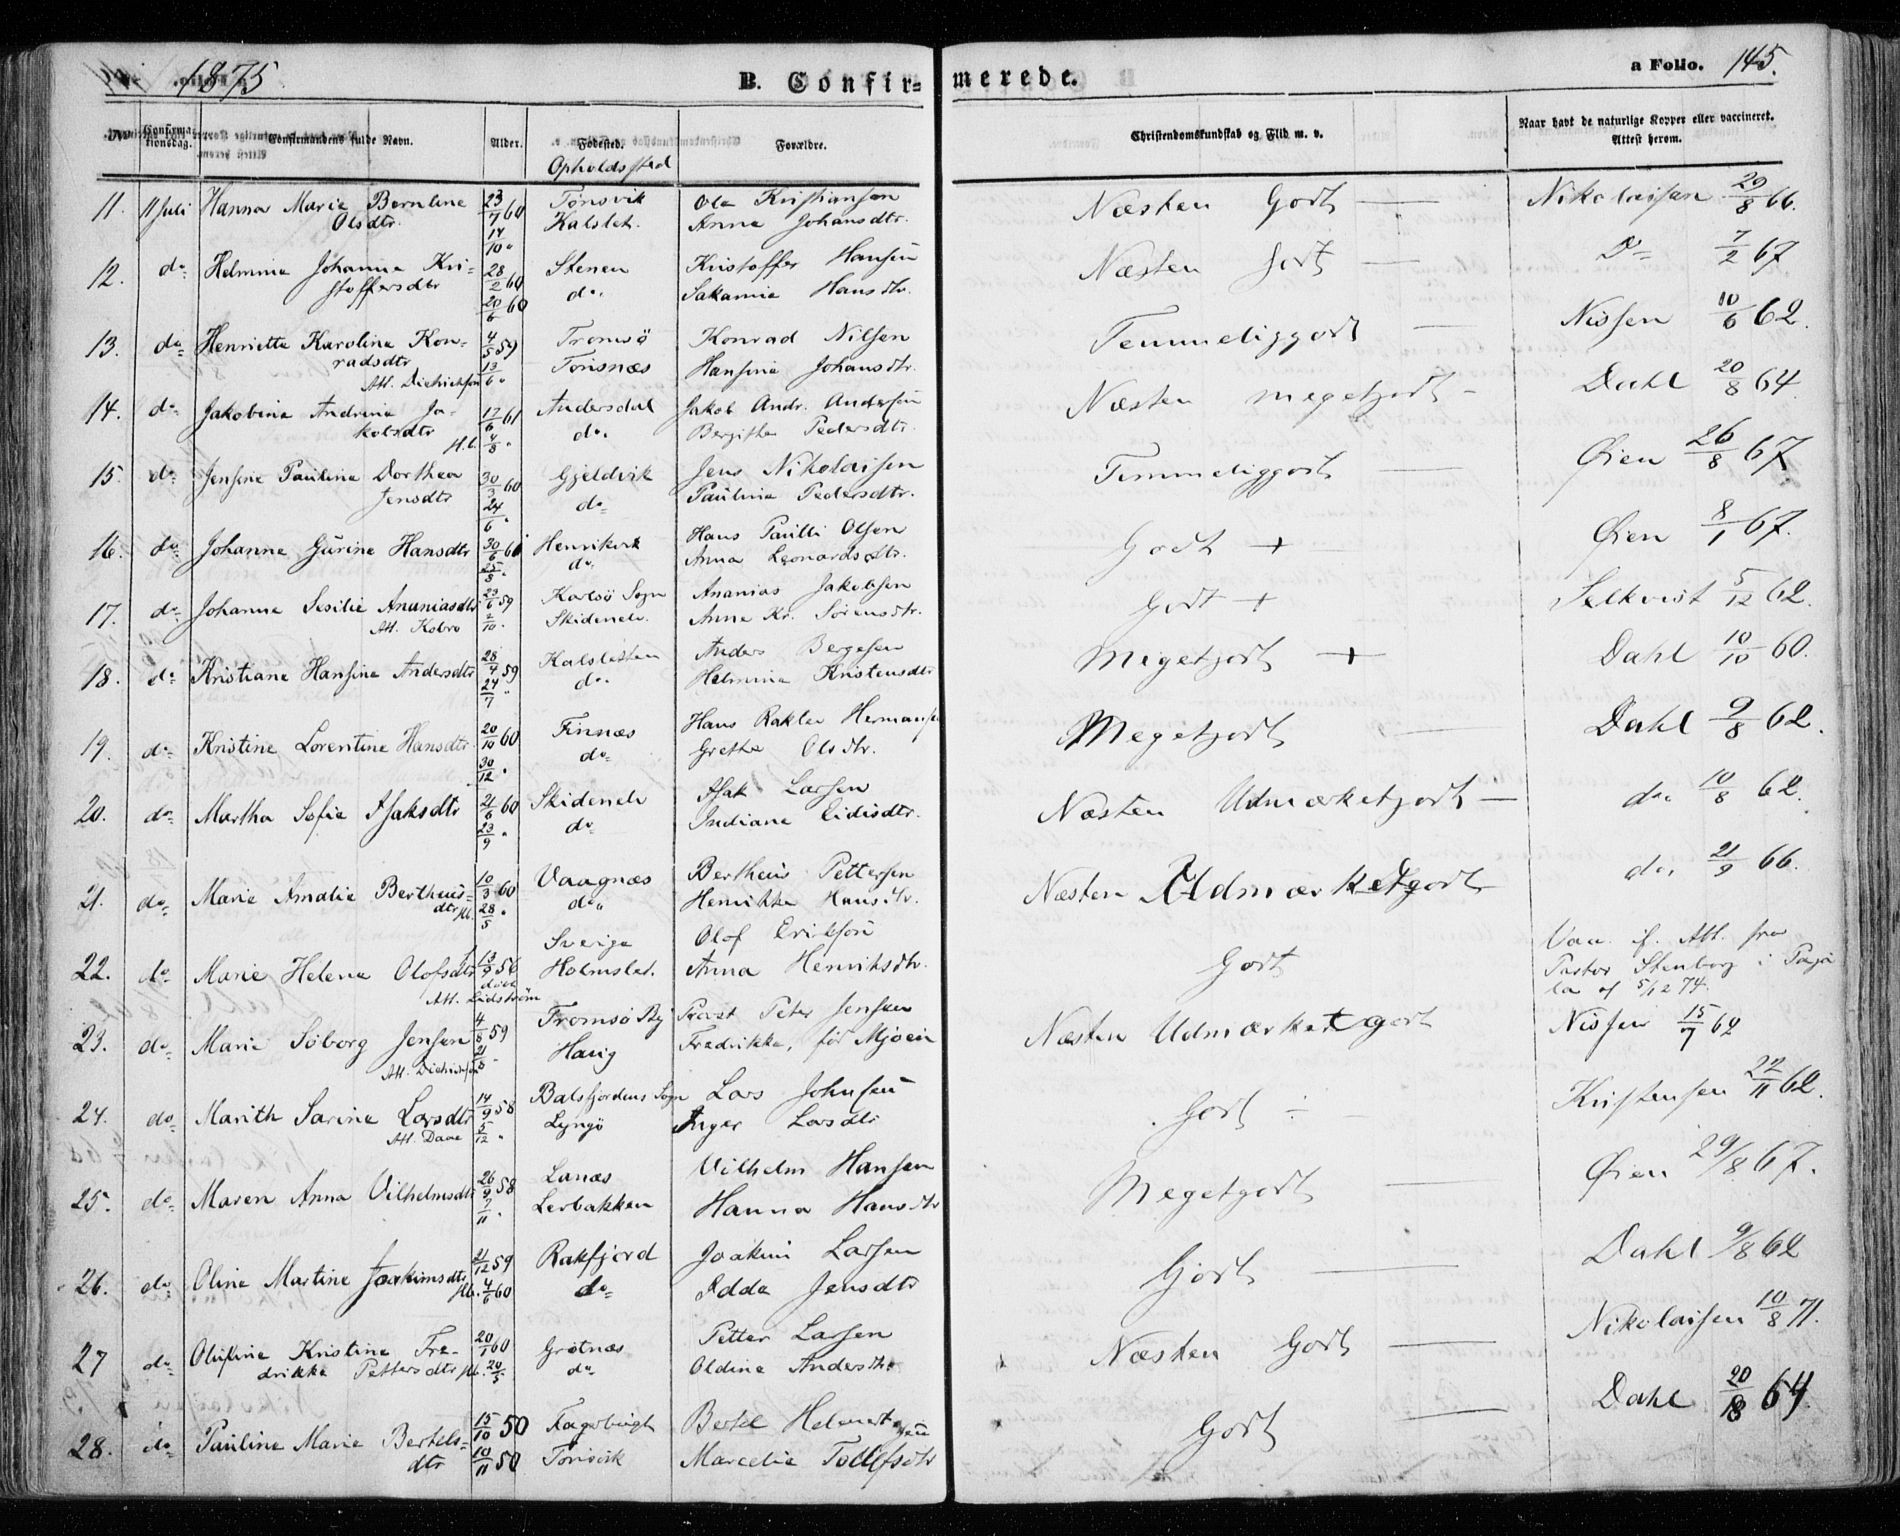 1875
B. Confir-
merede.
a Folio. 145.
No
Confirmationsdag.
Confirmandens fulde Navn.
Alder.
Fødested.
Opholdssted
Forældre.
Christendomskundskab og Flid m. v.
Naar havt de naturlige Kopper eller vaccineret. Attest herom.
11. 11 Juli Hanna Marie Berntine 23/7 60 Tønsvik Ole Kristiansen Næsten Godt — Nikolaisen 29/8 66.
Olsdtr. 14/10 " Kalslet. Anne Johansdtr.
12. do Helmine Johanne Kri- 28/2 60 Stenen Kristoffer Hansen Næsten Godt — Do 7/2 67
stoffersdtr 20/6 60 do. Sakamia Hansdtr.
13. do Henriette Karoline Kon- 4/5 59 Tromsö Konrad Nilsen Temmeliggodt — Nissen 10/6 62.
radsdtr 13/6 " Tonsnæs Hansine Johansdtr.
Att. Diedrichsen
14. do Jakobine Andrine Ja- 17/6 61 Andersdal Jakob Andr. Andersen Næsten megetgodt - Dahl 20/8 64.
kobsdtr 4/8 " do. Bergitha Pedersdtr.
15. do Jensine Pauline Dorthea 30/3 60 Gjeldvik Jens Nikolaisen Temmeliggodt — Øien 26/8 67.
Jensdtr 24/6 " do Pauline Pedersdtr.
16. do Johanne Gurine Hansdtr 30/6 60 Henrikvik Hans Paulli Olsen Godt + Øien 8/1 67.
25/8 " do. Anna Leonardsdtr.
17. do Johanne Sesilie Ananiasdtr 23/6 59 Karlsö Sogn Ananias Jakobsen Godt + Selkvist 5/12 62.
Att. Kobro 2/10 " Skidenelv. Anne Kr. Sörensdtr.
18. do Kristiane Hansine Andersdtr 28/4 59 Kalsletten Anders Bergesen Megetgodt + Dahl 10/10 60.
24/7 " do. Helmine Kristensdtr
19. do Kristine Lorentine Hansdtr. 20/10 60 Finnæs Hans Rakler Hermansen Megetgodt — Dahl 9/8 62.
30/12 " do Grethe Olsdtr.
20. do Martha Sofie Isaksdtr 21/6 60 Skidenelv Isak Larsen Næsten Udmærketgodt — do. 10/8 62.
23/9 " do Indiane Eidisdtr.
21. do Marie Amalie Bertheus- 10/3 60 Vaagnæs Bertheus Pettersen Næsten Udmærketgodt do. 21/9 66.
dtr 28/5 " do. Henrikka Hansdtr.
22. do Marie Helena Olofsdtr 13/9 56 Sverige Olof Erikson Godt Vacc. if. Att. fra
Att. Lidström Holmslet. Anna Henriksdtr. Pastor Stenborg i Pajala af 5/12 74.
23. do Marie Söborg Jensen 4/8 59 Tromsö By Provst Peter Jensen Næsten Udmærketgodt Nissen 15/7 62
Att. Diedrichsen 21/8 " Havig Fredrikka, før Mjöen
24. do Marith Sarine Larsdtr 14/9 58 Balsfjordens Sogn Lars Johnsen Godt ÷ — Kristensen 22/11 62.
Att. Daae 5/12 " Lyngö Inger Larsdtr
25. do Maren Anna Vilhelmsdtr 26/9 58 Lanæs Vilhelm Hansen Megetgodt — Øien 29/8 67.
7/11 " Lerbakken Hanna Hansdtr
26. do Oline Martine Joakimsdtr 21/12 59 Rakfjord Joakim Larsen Godt — Dahl 9/8 62
4/6 60 do Adda Jensdtr
27 do Olufine Kristine Fre- 20/1 60 Grötnæs Petter Larsen Næsten Godt — Nikolaisen 10/8 71.
drikka Pettersdtr 20/5 do Oldine Andersdtr
28. do Pauline Marie Bertels- 15/10 50 Fagerbugt Bertel Helmertsen Godt — Dahl 20/8 64.
dtr 10/11 50 Tönsvik Marcelie Tollefsdtr